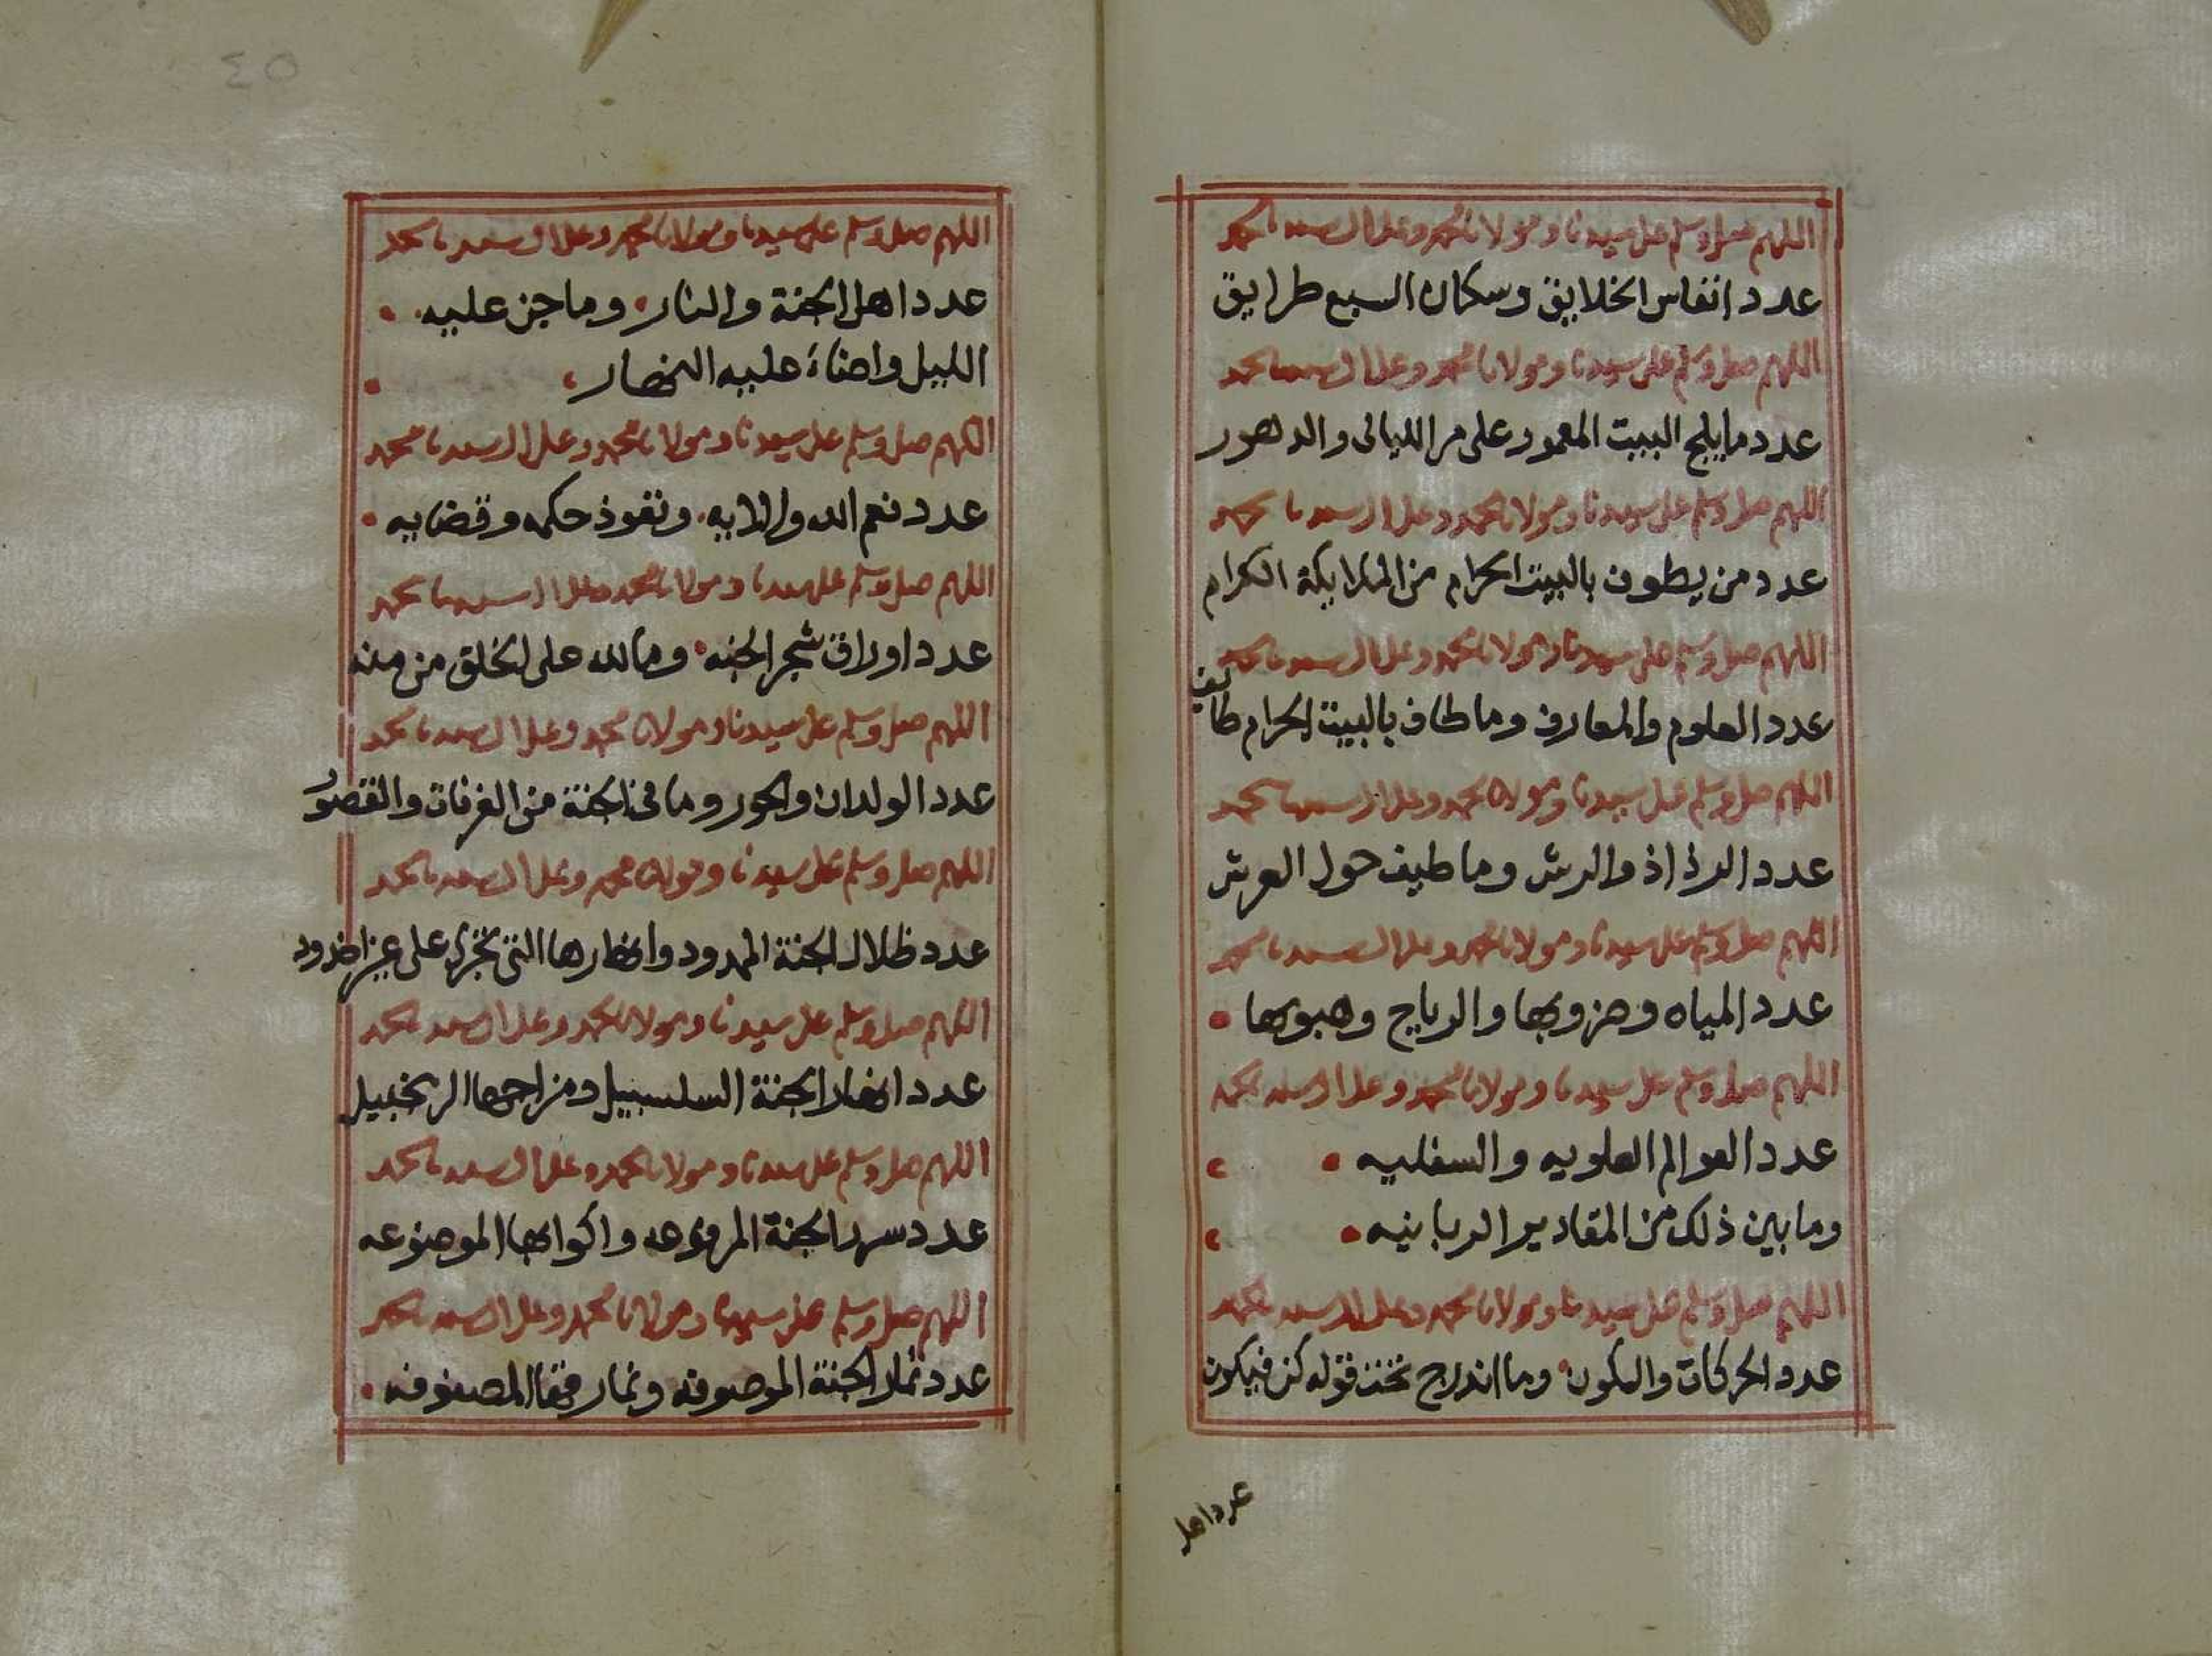 اللهم صل وسلم على سيدنا ومولانا محمد وعلى ال سيدنا محمد
عدد انفاس الخلايق وسكان السبع طرايق
اللهم صل وسلم على سيدنا ومولانا محمد وعلى ال سيدنا محمد
عدد ما يلج البيت المعمور على مر الليالى والدهور
اللهم صل وسلم على سيدنا ومولانا محمد وعلى ال سيدنا محمد
عدد من يطوف بالبيت الحرام من الملايكة الكرام
اللهم صل وسلم على سيدنا ومولانا محمد وعلى ال سيدنا محمد
عدد العلوم والمعارف وما طاف بالبيت الحرام طايف
اللهم صل وسلم على سيدنا ومولانا محمد وعلى ال سيدنا محمد
عدد الرذاذ والرش وما طيف حول العرش
اللهم صل وسلم على سيدنا ومولانا محمد وعلى ال سيدنا محمد
عدد المياه وضروبها والرياح وهبوبها
اللهم صل وسلم على سيدنا ومولانا محمد وعلى ال سيدنا محمد
عدد العوالم العلويه والسفليه
وما بين ذلك من المقادير الربانيه
اللهم صل وسلم على سيدنا ومولانا محمد وعلى ال سيدنا محمد
عدد الحركات والسكون وما اندرج تحت قوله كن فيكون
عدد اهل
٤٥
اللهم صل وسلم على سيدنا ومولانا محمد وعلى ال سيدنا محمد
عدد اهل الجنة والنار وما جن عليه
الليل واضاء عليه النهار
اللهم صل وسلم على سيدنا ومولانا محمد وعلى ال سيدنا محمد
عدد نعم الله والايه ونفوذ حكمه وقضايه
اللهم صل وسلم على سيدنا ومولانا محمد وعلى ال سيدنا محمد
عدد اوراق شجر الجنه وما لله على الخلق من منه
اللهم صل وسلم على سيدنا ومولانا محمد وعلى ال سيدنا محمد
عدد الولدان والحور وما فى الجنة من الغرفات والقصور
اللهم صل وسلم على سيدنا ومولانا محمد وعلى ال سيدنا محمد
عدد ظلال الجنة الممدود وانهارها التى تجرى على غير اخدود
اللهم صل وسلم على سيدنا ومولانا محمد وعلى ال سيدنا محمد
عدد انهار الجنة السلسبيل ومزاجها الزنجبيل
اللهم صل وسلم على سيدنا ومولانا محمد وعلى ال سيدنا محمد
عدد سرر الجنة المرفوعه واكوابها الموضوعه
اللهم صل وسلم على سيدنا ومولانا محمد وعلى ال سيدنا محمد
عدد ثمار الجنة الموصوفه ونمارقها المصفوفه